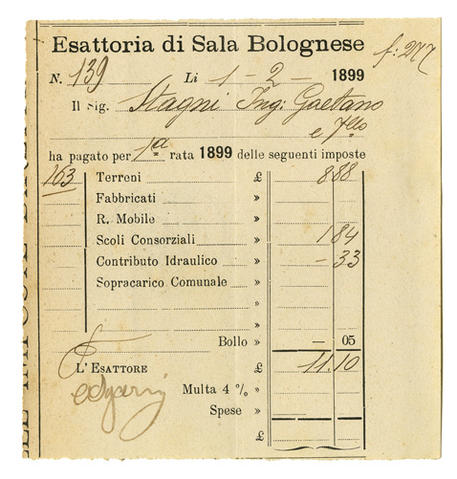 Esattoria di Sala Bolognese
f: 277
N. 139 Li 1 - 2 - 1899
Il Sig. Stagni Ing: Gaetano
e
ha pagato per 1ª rata 1899 delle seguenti imposte
163 Terreni £ 8 88
Fabbricati »
R. Mobile »
Scoli Consorziali » 1 84
Contributo Idraulico » - 33
Sopracarico Comunale »
»
»
Bollo » — 05
L'Esattore £ 11.10
Multa 4 % »
Spese »
£